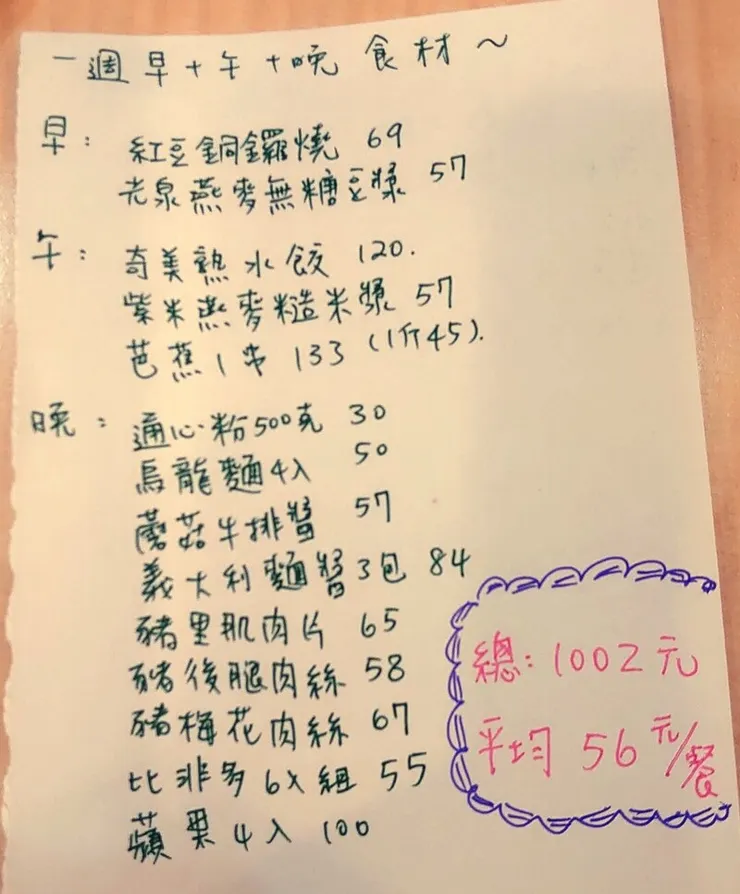 一週早+午+晚食材~
早: 紅豆銅鑼燒 69
老泉燕麥無糖豆漿 57
午: 奇美熟水餃 120.
紫米燕麥糙米漿 57
芭蕉1串 133 (1斤45).
晚: 通心粉500克 30
烏龍麵4入 50
蘑菇牛排醬 57
義大利麵醬3包 84
豬里肌肉片 65
豬後腿肉絲 58
豬梅花肉絲 67
比菲多6入組 55
蘋果4入 100
總:1002元
平均 56元/餐